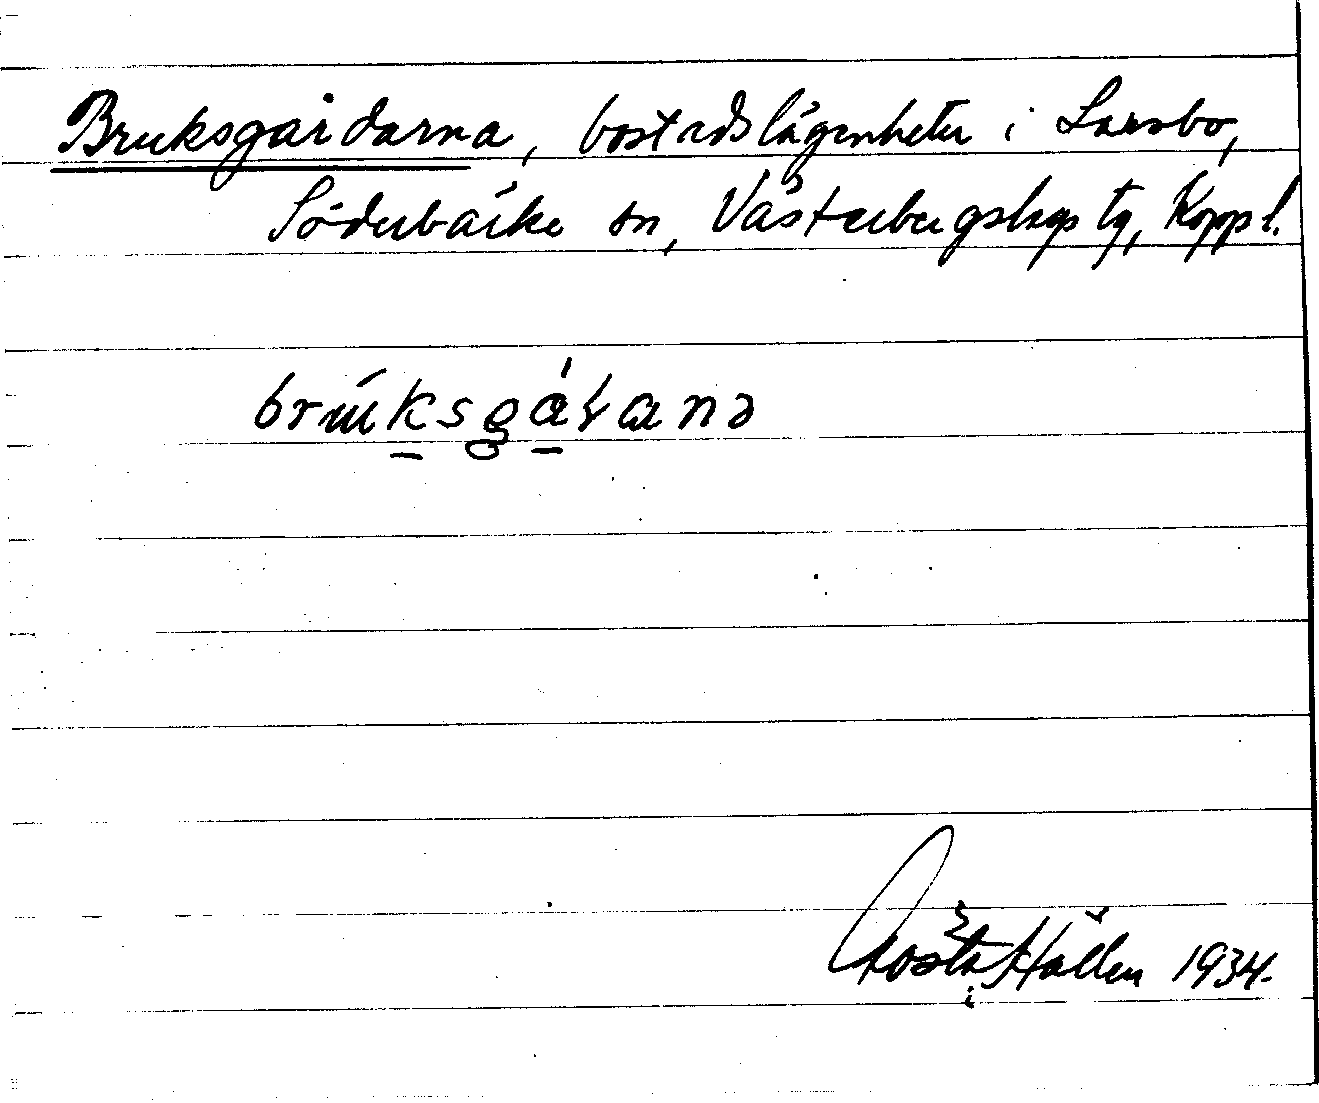 Bruksgårdarna, bostadslägenheter i Larsbo,
Söderbärke sn, Västerbergslags tg, Kopp l.
Gösta Hallén 1934.